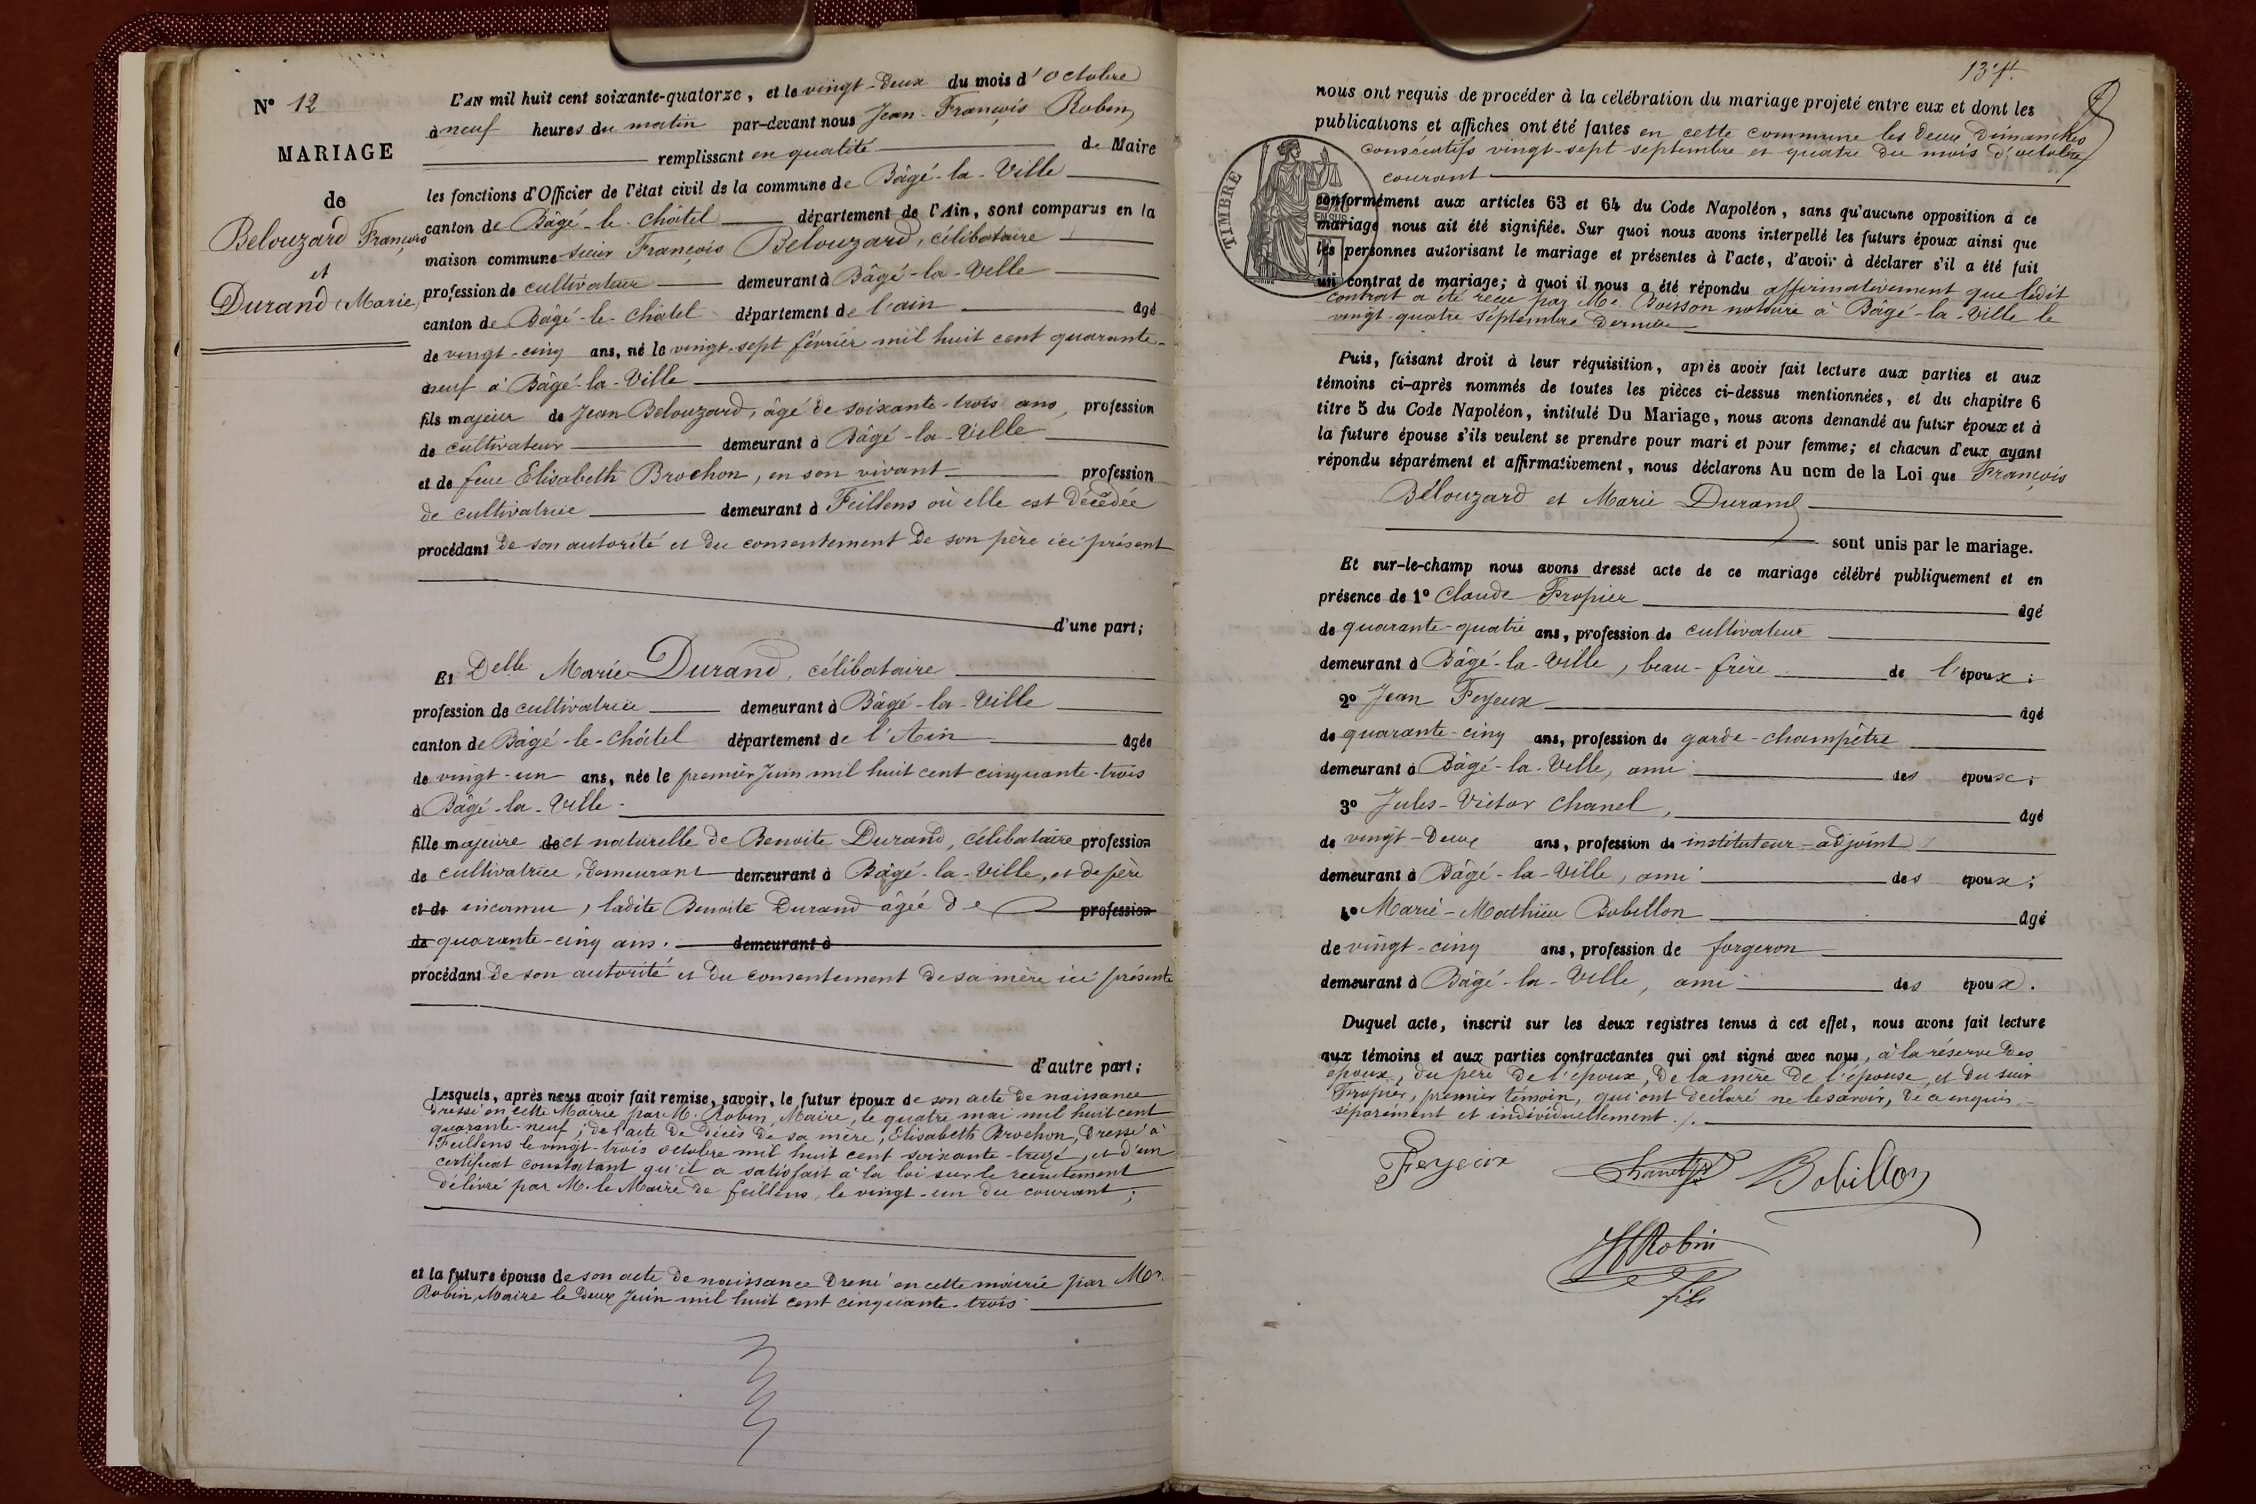 N° 12
MARIAGE
de
Belouzard François
et
Durand Marie
L'AN mil huit cent soixante-quatorze, et le vingt-deux du mois d'octobre
à neuf heures du matin par-devant nous Jean-François Robin
remplissant en qualité de Maire
les fonctions d'Officier de l'état civil de la commune de Bâgé-la-Ville
canton de Bâgé-le-Châtel département de l'Ain, sont comparus en la
maison commune sieur François Belouzard, célibataire
profession de cultivateur demeurant à Bâgé-la-Ville
canton de Bâgé-le-Châtel département de l'ain agé
de vingt-cinq ans, né le vingt-sept février mil huit cent quarante-
neuf à Bâgé-la-Ville
fils majeur de Jean Belouzard, âgé de soixante-trois ans, profession
de cultivateur demeurant à Bâgé-la-Ville
et de feue Elisabeth Brochon, en son vivant profession
de cultivatrice demeurant à Feillens où elle est décédée
procédant de son autorité et du consentement de son père ici présent
d'une part;
Et Delle Marie Durand, célibataire
profession de cultivatrice demeurant à Bâgé-la-Ville
canton de Bâgé-le-Châtel département de l'Ain agée
de vingt-un ans, née le premier Juin mil huit cent cinquante-trois
à Bâgé-la-Ville
fille majeure de et naturelle de Benoite Durand, célibataire profession
de cultivatrice, demeurant demeurant à Bâgé-la-Ville, et de père
et de inconnu, ladite Benoite Durand âgée de profession
de quarante-cinq ans. demeurant à
procédant de son autorité et du consentement de sa mère ici présente
d'autre part;
Lesquels, après nous avoir fait remise, savoir, le futur époux de son acte de naissance
dressé en cette Mairie par M. Robin, Maire, le quatre mai mil huit cent
quarante-neuf; de l'acte de décès de sa mère, Elisabeth Brochon, dressé à
Feillens le vingt-trois octobre mil huit cent soixante-treize, et d'un
certificat constatant qu'il a satisfait à la loi sur le recrutement
délivré par M. le Maire de feillens, le vingt-un du courant;
et la future épouse de son acte de naissance dressé en cette mairie par Mr.
Robin, Maire le deux Juin mil huit cent cinquante-trois
nous ont requis de procéder à la célébration du mariage projeté entre eux et dont les
publications et affiches ont été faites en cette commune les deux dimanches
consécutifs vingt-sept septembre et quatre du mois d'octobre
courant
TIMBRE
conformément aux articles 63 et 64 du Code Napoléon, sans qu'aucune opposition à ce
mariage nous ait été signifiée. Sur quoi nous avons interpellé les futurs époux ainsi que
les personnes autorisant le mariage et présentes à l'acte, d'avoir à déclarer s'il a été fait
un contrat de mariage; à quoi il nous a été répondu affirmativement que ledit
contrat a été reçu par Me. Boisson notaire à Bâgé-la-Ville le
vingt-quatre septembre dernier
Puis, faisant droit à leur réquisition, après avoir fait lecture aux parties et aux
témoins ci-après nommés de toutes les pièces ci-dessus mentionnées, et du chapitre 6
titre 5 du Code Napoléon, intitulé Du Mariage, nous avons demandé au futur époux et à
la future épouse s'ils veulent se prendre pour mari et pour femme; et chacun d'eux ayant
répondu séparément et affirmativement, nous déclarons Au nom de la Loi que François
Bélouzard et Marie Durand
sont unis par le mariage.
Et sur-le-champ nous avons dressé acte de ce mariage célébré publiquement et en
présence de 1° Claude Fropier âgé
de quarante-quatre ans, profession de cultivateur
demeurant à Bâgé-la-Ville, beau-frère de l'époux;
2° Jean Feyeux âgé
de quarante-cinq ans, profession de garde-champêtre
demeurant à Bâgé-la-Ville, ami des époux;
3° Jules-Victor Chanel, âgé
de vingt-deux ans, profession de instituteur-adjoint
demeurant à Bâgé-la-Ville, ami des époux;
4° Marie-Mathieu Bobillon âgé
de vingt-cinq ans, profession de forgeron
demeurant à Bâgé-la-Ville, ami des époux.
Duquel acte, inscrit sur les deux registres tenus à cet effet, nous avons fait lecture
aux témoins et aux parties contractantes qui ont signé avec nous, à la réserve des
époux, du père de l'époux, de la mère de l'épouse, et du sieur
Fropier, premier témoin, qui ont déclaré ne le savoir, de ce enquis
séparément et individuellement.
Feyeux Chanel Bobillon
JfRobin
fils